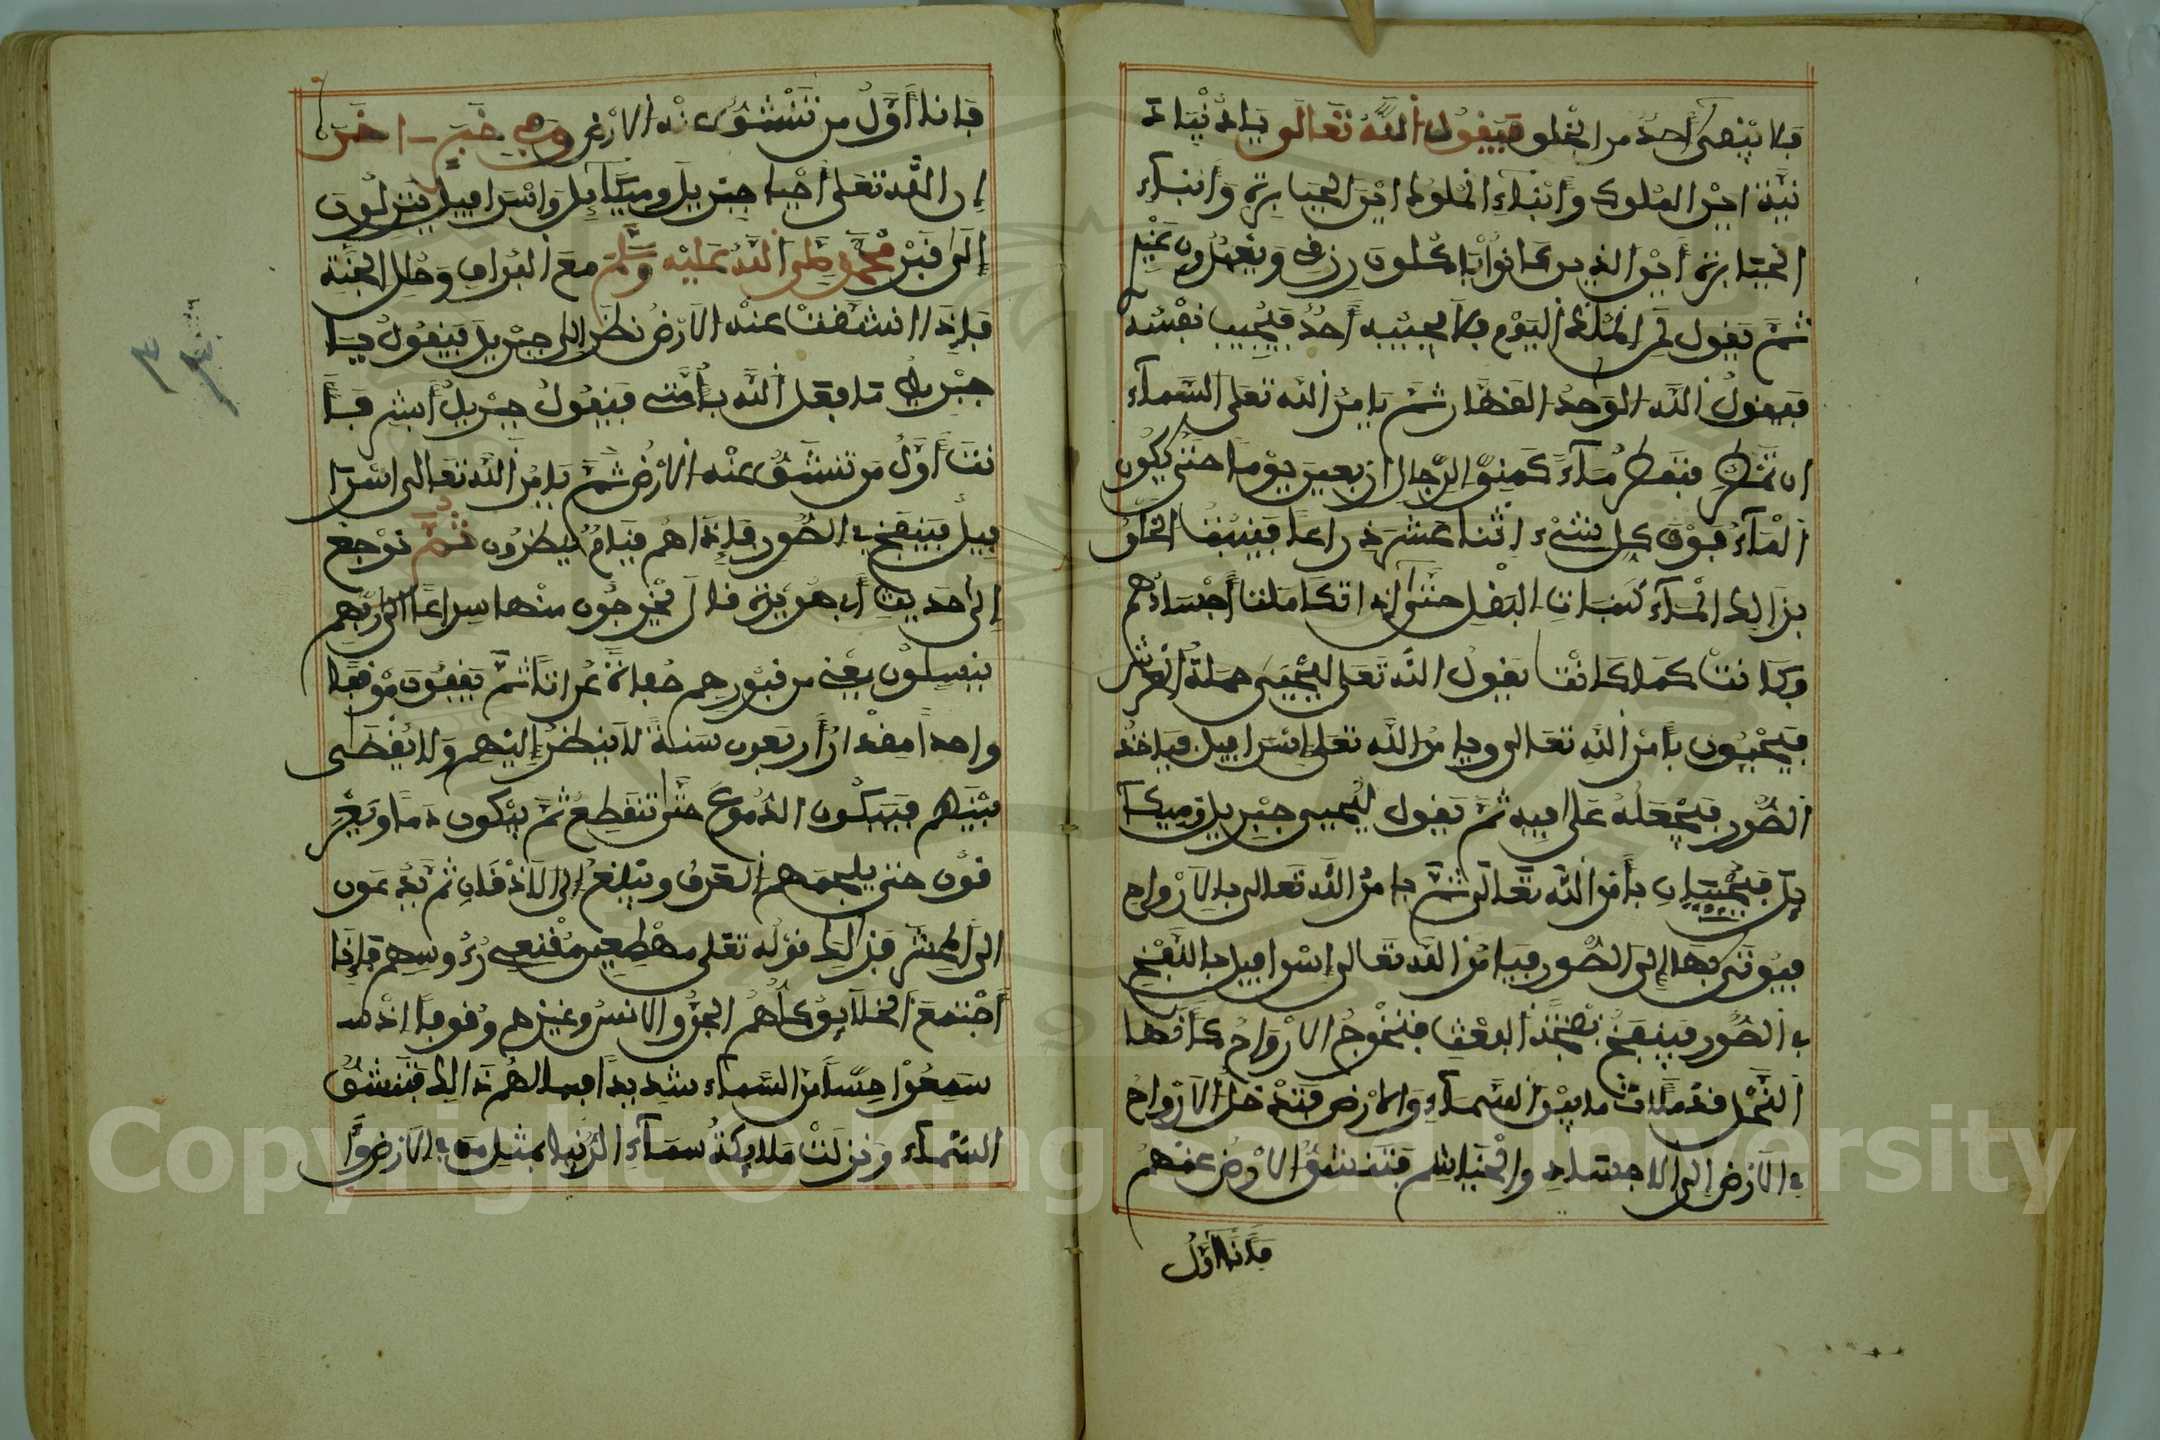 فلا يبقى أحد من الخلق فيقول الله تعالى يا دنيا د
نية اين الملوك وأبناء الملوك اين الجبابرة وأبناء
الجبابرة أين الذين كانوا ياكلون رزقي ويعبدون غير
ثم يقول لمن الملك اليوم فلا يجيبه أحد فيجيب نفسه
فيقول الله الواحد القهار ثم يامر الله تعلى السماء
ان تمطر فتمطر ماء كمني الرجال اربعين يوما حتى يكون
الماء فوق كل شيء اثنا عشر ذراعا فينبت الخلق
بذالك الماء كنبات البقل حتى إذا تكاملت أجسادهم
وكانت كما كانت يقول الله تعلى ليحيى حملة العرش
فيحيون بأمر الله تعالى ويامر الله تعلى إسرافيل فياخذ
الصور فيجعله على فيه ثم يقول ليحيى جبريل وميكا
يل فيحييان بأمر الله تعالى ثم يامر الله تعالى بالارواح
فيوتى بها إلى الصور فيامر الله تعالى إسرافيل بالنفخ
في الصور فينفخ نفخة البعث فتخرج الارواح كأنها
النحل قد ملات ما بين السماء والارض فتدخل الارواح
في الارض إلى الاجساد والخياشم فتنشق الارض عنهم
فأنا أول
فانا أول من تنشق عنه الارض وفي خبر اخر
إن الله تعلى أحيا جبريل وميكايل وإسرافيل فينزلون
إلى قبر محمد صلى الله عليه وسلم مع البراق وحلل الجنة
فإذا انشقت عنه الارض نظر إلى جبريل فيقول يا
جبريل ما فعل الله بأمتي فيقول جبريل أبشر فأ
نت أول من تنشق عنه الارض ثم يامر الله تعالى اسرا
فيل فينفخ في الصور فإذا هم قيام ينظرون ثم نرجع
إلى حديث أبي هريرة قال يخرجون منها سراعا الى ربهم
ينسلون يعني من قبورهم حفاة عراتا ثم يقفون موقفا
واحدا مقدار أربعون سنة لا ينظر إليهم ولا يقضى
بينهم فيبكون الدموع حتى تنقطع ثم يبكون دما ويعر
قون حتى يلجمهم العرق ويبلغ إلى الاذقان ثم يدعون
الى المحشر فذالك قوله تعلى مهطعين مقنعي رءوسهم فإذا
أجتمع الخلايق كلهم الجن والانس وغيرهم وقوفا اذ
سمعوا حسا من السماء شديدا فهالهم ذالك فتنشق
السماء ونزلت ملايكة سماء الدنيا بمثلي من في الارض